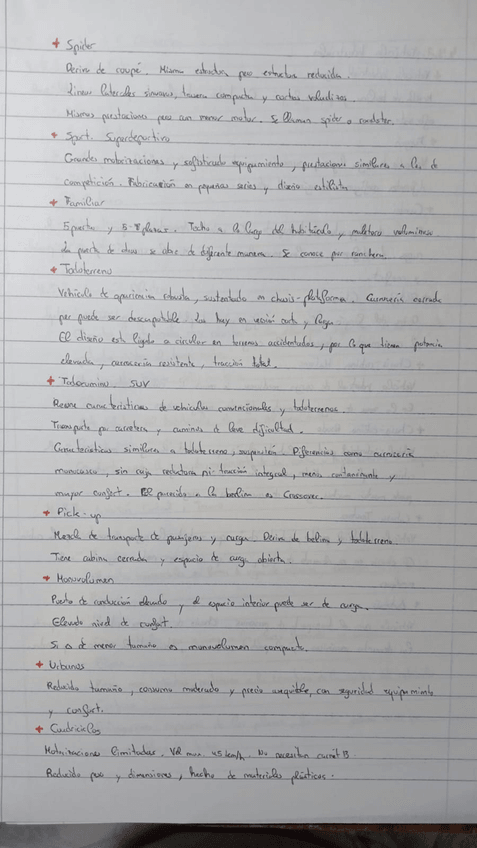 + Spider
Deriva de coupé. Misma estructura pero estructura reducida.
Lineas laterales sinuosas, trasera compacta y cortos voladizos.
Mismas prestaciones pero con menor motor. Se llaman spider o roadster.
+ Sport. Superdeportivo
Grandes motorizaciones y sofisticado equipamiento, prestaciones similares a las de
competición. Fabricación en pequeñas series y diseño estilista
+ Familiar
5 puertas y 5-7 plazas. Techo a lo largo del habitáculo y maletero voluminoso
La puerta de atras se abre de diferente manera. Se conoce por ranchera.
+ Todoterreno
Vehículo de apariencia robusta, sustentado en chasis-plataforma. Carrocería cerrada
pero puede ser descapotable. Los hay en versión corta y larga.
El diseño está ligado a circular en terrenos accidentados, por lo que tienen potencia
elevada, carrocería resistente, tracción total.
+ Todocamino. SUV
Reune características de vehículos convencionales y todoterrenos.
Transporte por carretera y caminos de leve dificultad.
Características similares a todoterreno, suspensión. Diferencias como carrocería
monocasco, sin caja reductora ni tracción integral, menos contaminante y
mayor confort. El parecido a la berlina es Crossover.
+ Pick-up
Mezcla de transporte de pasajeros y carga. Deriva de berlina y todoterreno.
Tiene cabina cerrada y espacio de carga abierta.
+ Monovolumen
Puesto de conducción elevado y el espacio interior puede ser de carga.
Elevado nivel de confort.
Si es de menor tamaño es monovolumen compacto.
+ Urbanos
Reducido tamaño, consumo moderado y precio asequible, con seguridad equipamiento
y confort.
+ Cuadriciclos
Motorizaciones limitadas. Vel max 45 km/h. No necesitan carnet B
Reducido peso y dimensiones, hecho de materiales plásticos.